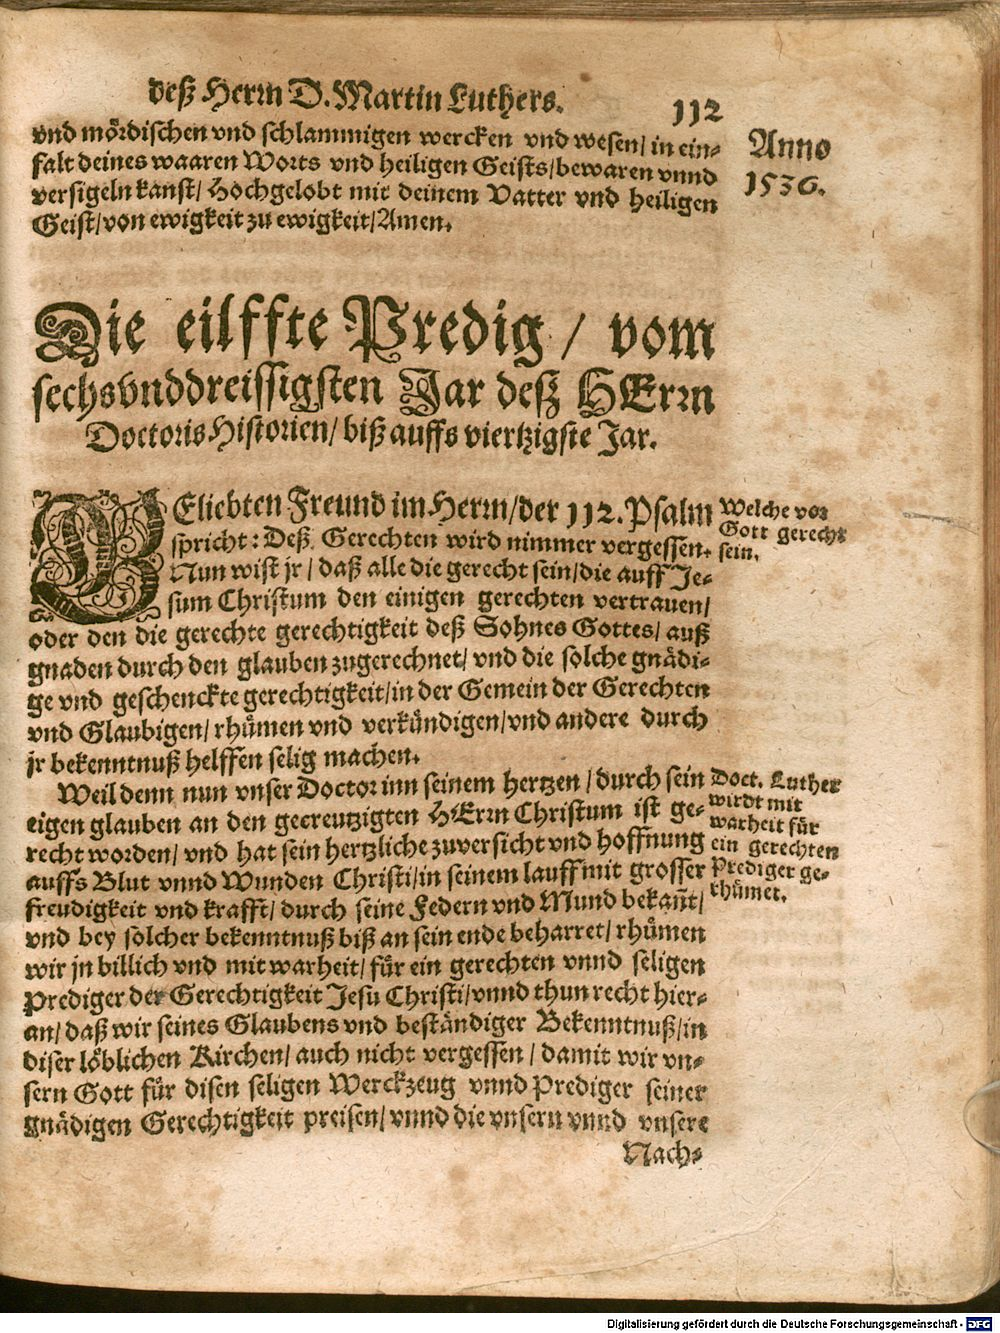 deß Herrn D. Martin Luthers.
112
vnd mördischen vnd schlammigen wercken vnd wesen/ in ein-
falt deines waaren Worts vnd heiligen Geists/ bewaren vnnd
versigeln kanst/ Hochgelobt mit deinem Vatter vnd heiligen
Geist/ von ewigkeit zu ewigkeit/ Amen.
Anno
1536.
Die eilffte Predig / vom
sechsvnddreissigsten Jar deß HErrn
Doctoris Historien/ biß auffs viertzigste Jar.
GEliebten Freund im Herrn/ der 112. Psalm
spricht: Deß Gerechten wird nimmer vergessen.
Nun wist jr / daß alle die gerecht sein/ die auff Je-
sum Christum den einigen gerechten vertrauen/
oder den die gerechte gerechtigkeit deß Sohnes Gottes/ auß
gnaden durch den glauben zugerechnet/ vnd die solche gnädi-
ge vnd geschenckte gerechtigkeit/ in der Gemein der Gerechten
vnd Glaubigen/ rhümen vnd verkündigen/ vnd andere durch
jr bekenntnuß helffen selig machen.
Welche vor
Gott gerecht
sein.
Weil denn nun vnser Doctor inn seinem hertzen / durch sein
eigen glauben an den gecreutzigten HErrn Christum ist ge-
recht worden/ vnd hat sein hertzliche zuversicht vnd hoffnung
auffs Blut vnnd Wunden Christi/ in seinem lauff mit grosser
freudigkeit vnd krafft/ durch seine Federn vnd Mund bekañt/
vnd bey solcher bekenntnuß biß an sein ende beharret/ rhümen
wir jn billich vnd mit warheit/ für ein gerechten vnnd seligen
Prediger der Gerechtigkeit Jesu Christi/ vnnd thun recht hier-
an/ daß wir seines Glaubens vnd beständiger Bekenntnuß/ in
diser löblichen Kirchen/ auch nicht vergessen / damit wir vn-
sern Gott für disen seligen Werckzeug vnnd Prediger seiner
gnädigen Gerechtigkeit preisen/ vnnd die vnsern vnnd vnsere
Nach-
Doct. Luther
wirdt mit
warheit für
ein gerechten
Prediger ge-
rhümet.
Digitalisierung gefördert durch die Deutsche Forschungsgemeinschaft - DFG